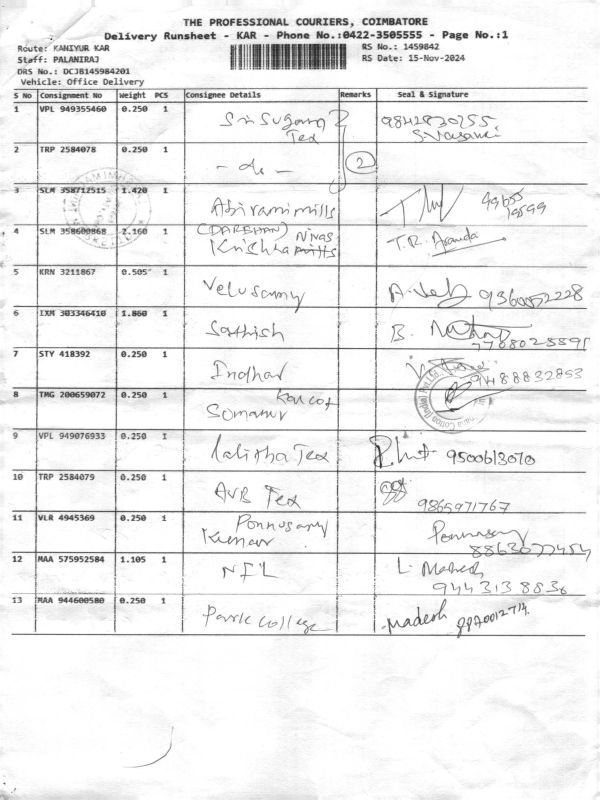 THE PROFESSIONAL COURIERS, COIMBATORE
Delivery Runsheet - KAR - Phone No.:0422-3505555 - Page No.:1
Route: KANIYUR KAR
RS No.: 1459842
Staff: PALANIRAJ
RS Date: 15-Nov-2024
DRS No.: DCJB145984201
Vehicle: Office Delivery
S No Consignment No Weight PCS Consignee Details Remarks Seal & Signature
1 VPL 949355460 0.250 1 Tex 9842830255
2 TRP 2584078 0.250 1 - do - 2
3 SLM 358712515 1.420 1 Abirami mills
4 SLM 358600868 2.160 1 (DARSHAN) Krishna T.R. Ananda
5 KRN 3211867 0.505 1 Velusamy 9360052228
6 IXM 303346410 1.860 1 Sathish B.
7 STY 418392 0.250 1 Indhar 9488832853
8 TMG 200659072 0.250 1 Somanur
9 VPL 949076933 0.250 1 Lalitha Tex 9500613070
10 TRP 2584079 0.250 1 AVB Tex 9865971767
11 VLR 4945369 0.250 1 Ponnusamy Kumar Ponnusamy
12 MAA 575952584 1.105 1 NFL L. Mahesh
9443138836
13 MAA 944600580 0.250 1 Park College Madesh